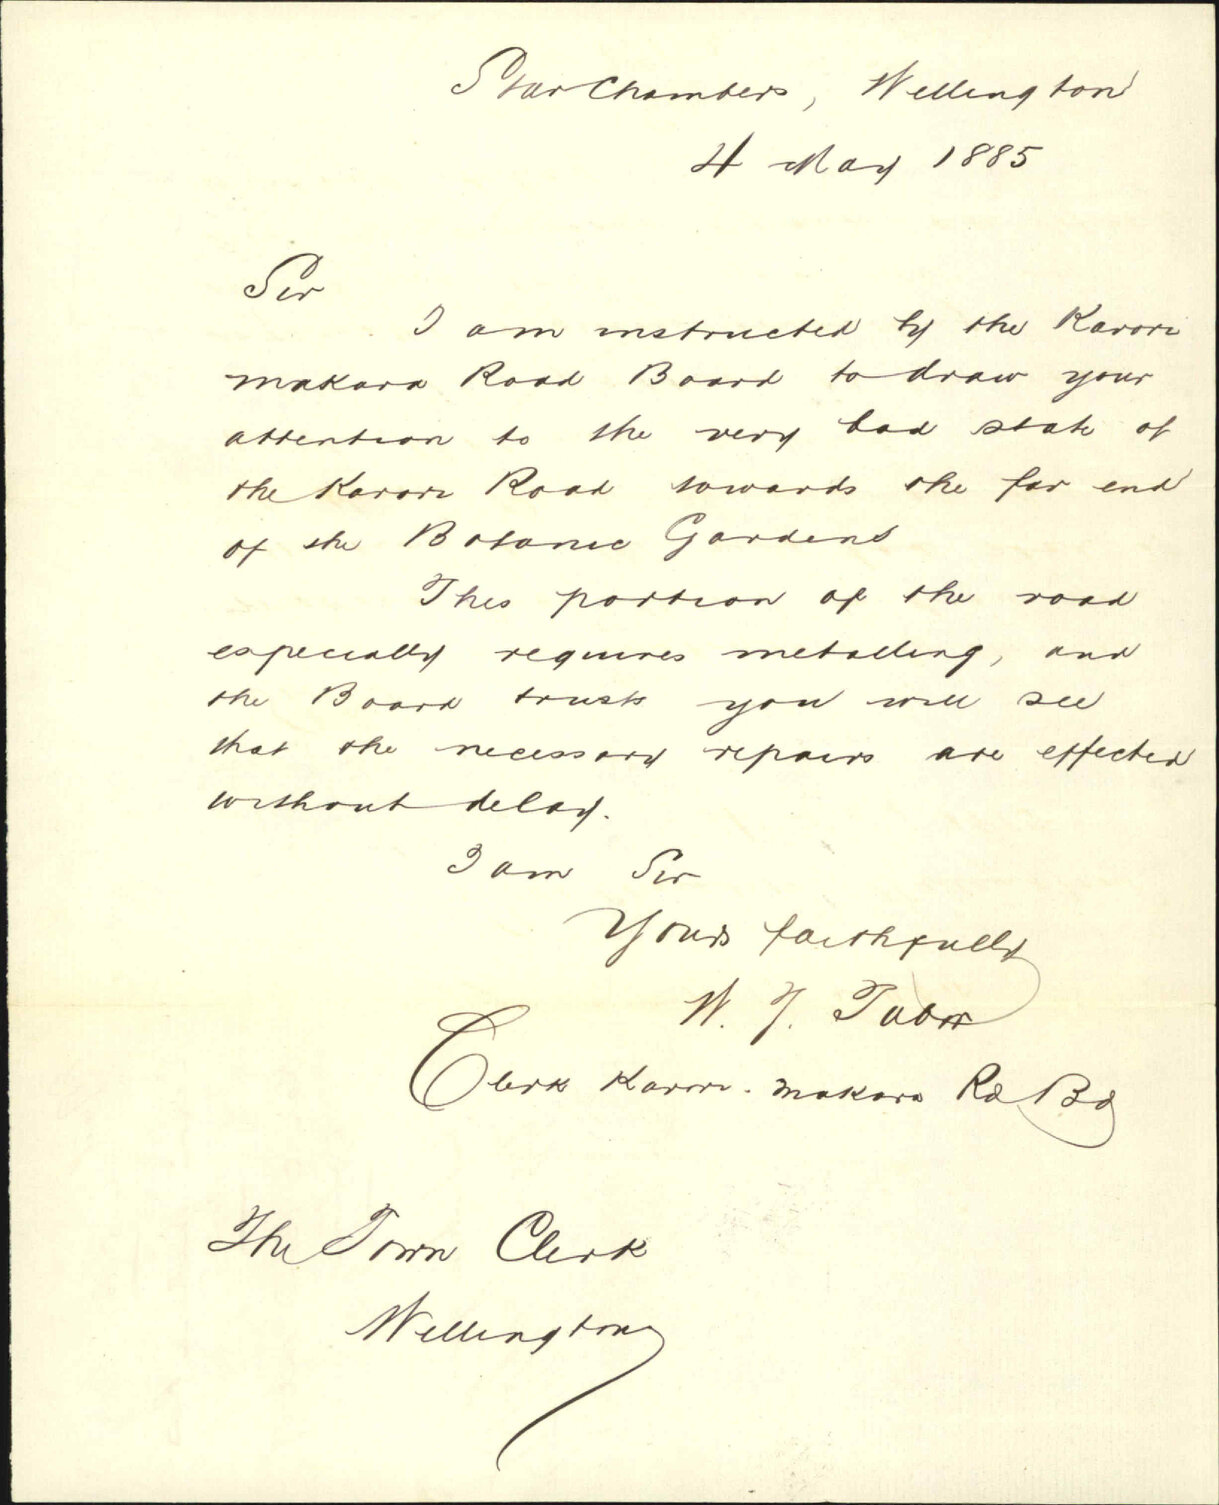 Star Chambers, Wellington
4 May 1885
Sir
I am instructed by the Karori
Makara Road Board to draw your
attention to the very bad state of
the Karori Road towards the far end
of the Botanic Gardens
This portion of the road
especially requires metalling, and
the Board trusts you will see
that the necessary repairs are effected
without delay.
I am Sir
Yours faithfully
W. J.
Clerk Karori. Makara Rd Bd
The Town Clerk
Wellington